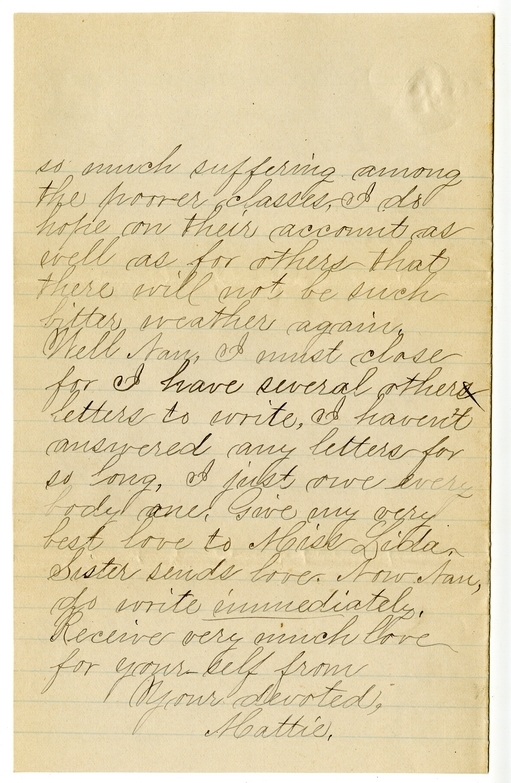 so much suffering among
the poorer classes, I do
hope on their account as
well as for others that
there will not be such
bitter weather again.
Well Nan, I must close
for I have several others
letters to write, I haven't
answered any letters for
so long, I just owe every
body one. Give my very
best love to Miss Lida.
Sister sends love. Now Nan,
do write immediately.
Receive very much love
for your-self from
Your devoted,
Mattie.